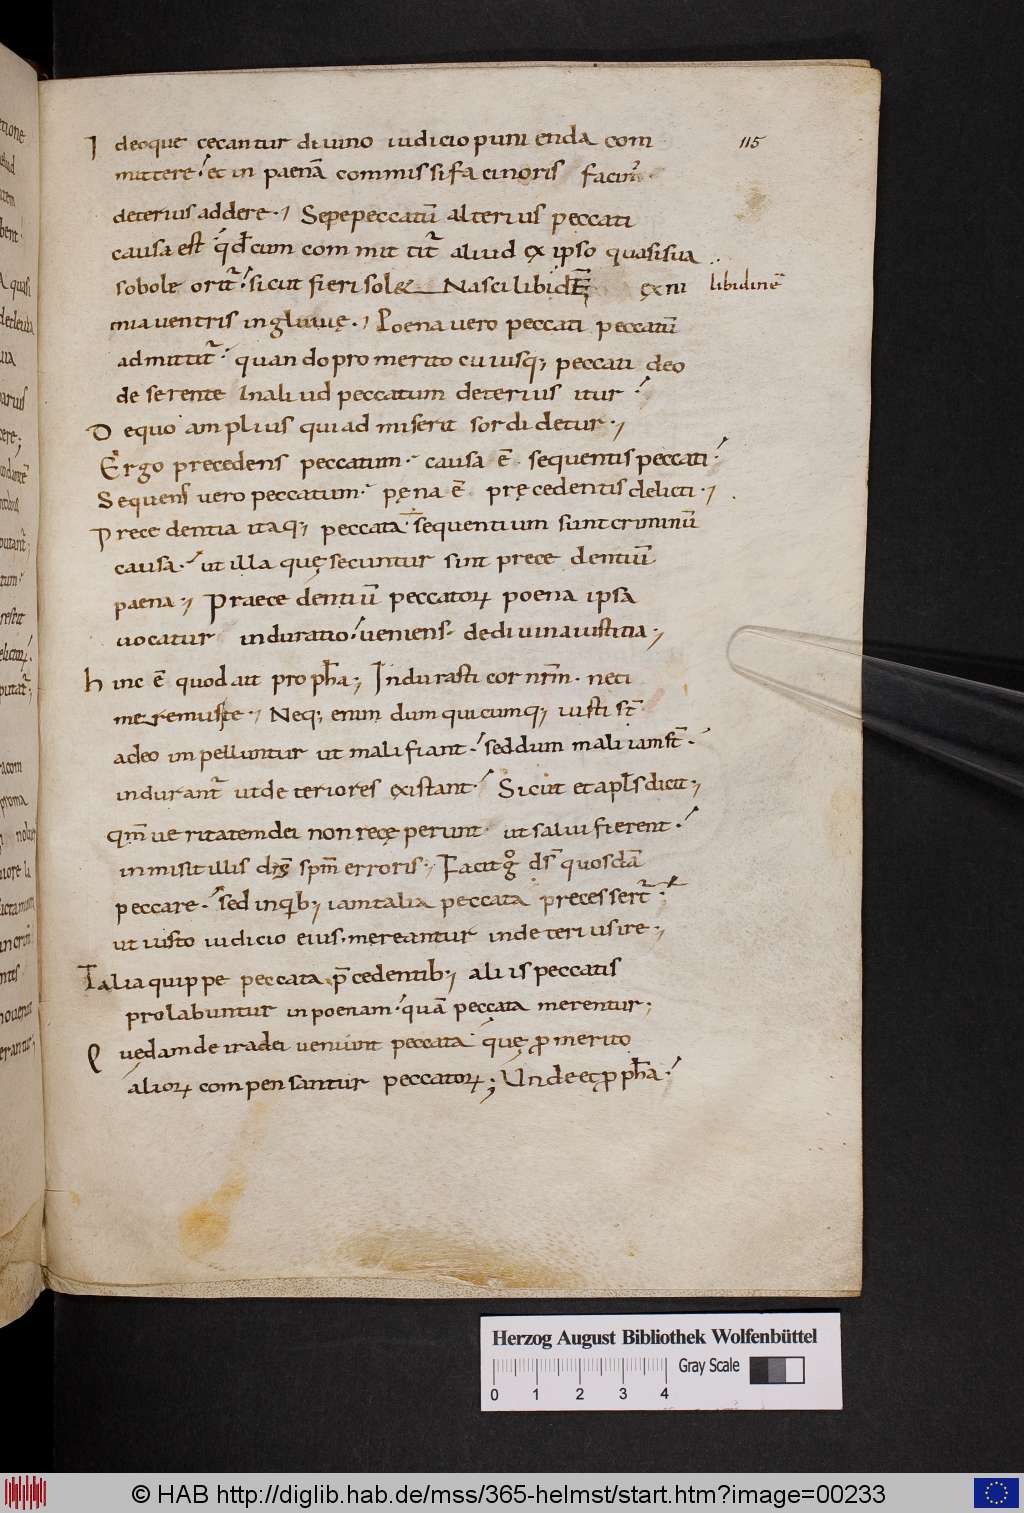 115
Ideoque cęcantur diuino iudicio punienda com
mittere. et in paenā commissi facinoris facin᷒.
deterius addere. Sepe peccatū alterius peccati
causa est q̄d cum committit᷒ aliud ex ipso quasi sua
sobole orit᷒. sicut fieri sol& Nasci libidĒ ex ni
libidinē
mia uentris ingluuię. Poena uero peccati peccatū
admittit᷒. quando pro merito cuiusq; peccati deo
deserente In aliud peccatum deterius itur.
De quo amplius qui admiserit sordidetur.
Ergo precedens peccatum. causa ē. sequentis peccati.
Sequens uero peccatum. pęna ē pręcedentis delicti.
Precedentia itaq; peccata sequentium sunt criminū
causa. ut illa quę secuntur sint precedentiū
paena. Praecedentiū peccatoꝝ poena ipsa
uocatur induratio. ueniens de diuina iustitia.
hinc ē quod ait propha; Indurasti cor nrm. ne ti
meremus te. Neq; enim dum quicumq; iusti st̄
a deo impelluntur ut mali fiant. sed dum mali iam st̄.
indurant᷒ ut deteriores existant. Sicut et apls dicit.
qm̄ ueritatem dei non recęperunt ut salui fierent.
inmisit illis ds̄ spm̄ erroris. Facit gͦ ds̄ quosdā
peccare. sed in qib; iam talia peccata precesser᷒t.
ut iusto iudicio eius. mereantur in deterius ire.
Talia quippe peccata p̄cedentib; aliis peccatis
prolabuntur in poenam. quā peccata merentur;
Quędam de ira dei ueniunt peccata quę ꝓ merito
alioꝝ compensantur peccatoꝝ; Unde et ꝓpha.
Herzog August Bibliothek Wolfenbüttel
Gray Scale
0 1 2 3 4
© HAB http://diglib.hab.de/mss/365-helmst/start.htm?image=00233